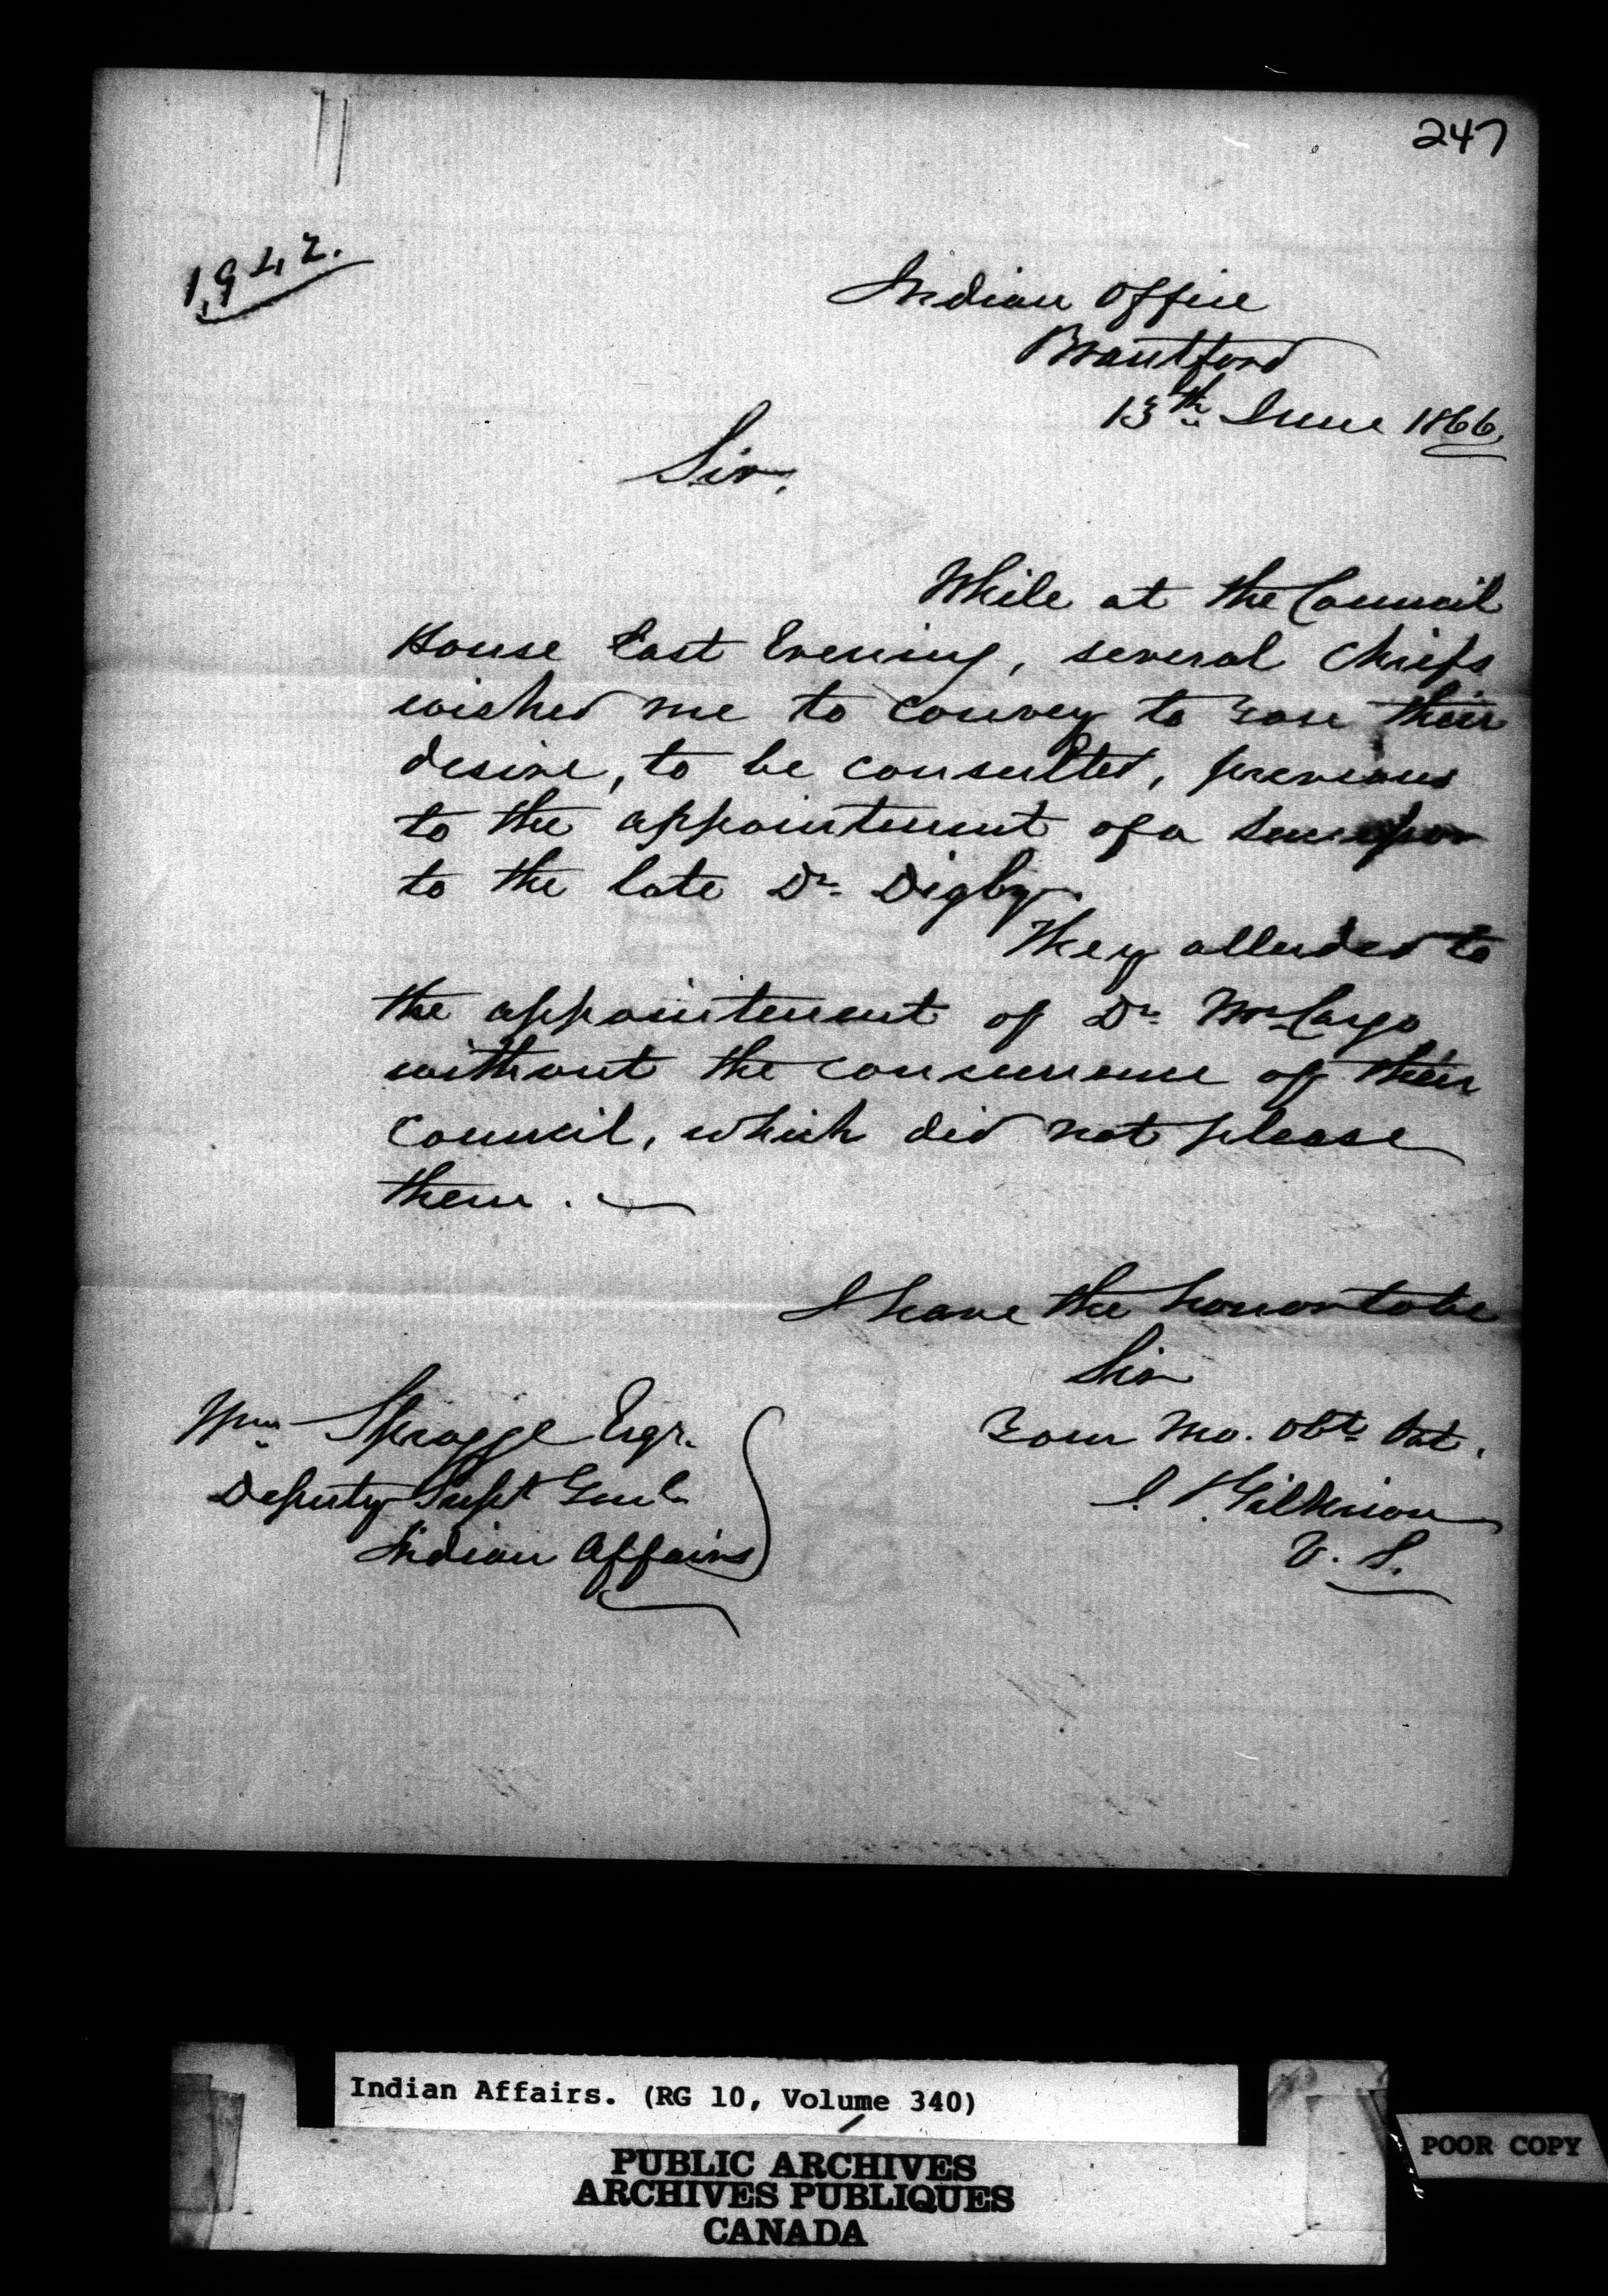 247
1942.
Indian Office
Brantford
13th June 1866
Sir,
While at the Council
House last Evening, several Chiefs
wished me to convey to you their
desire, to be consulted, previous
to the appointment of a Successor
to the late Dr. Digby.
They alluded to
the appointment of Dr. McCargo
without the concurrence of their
Council, which did not please
them. —
I have the honor to be
Sir
Your Mo. Obt. Svt.
J. T. Gilkison
V. S.
Wm. Spragge Esqr.
Deputy Supt. Genl.
Indian Affairs
Indian Affairs. (RG 10, Volume 340)
PUBLIC ARCHIVES
ARCHIVES PUBLIQUES
CANADA
POOR COPY